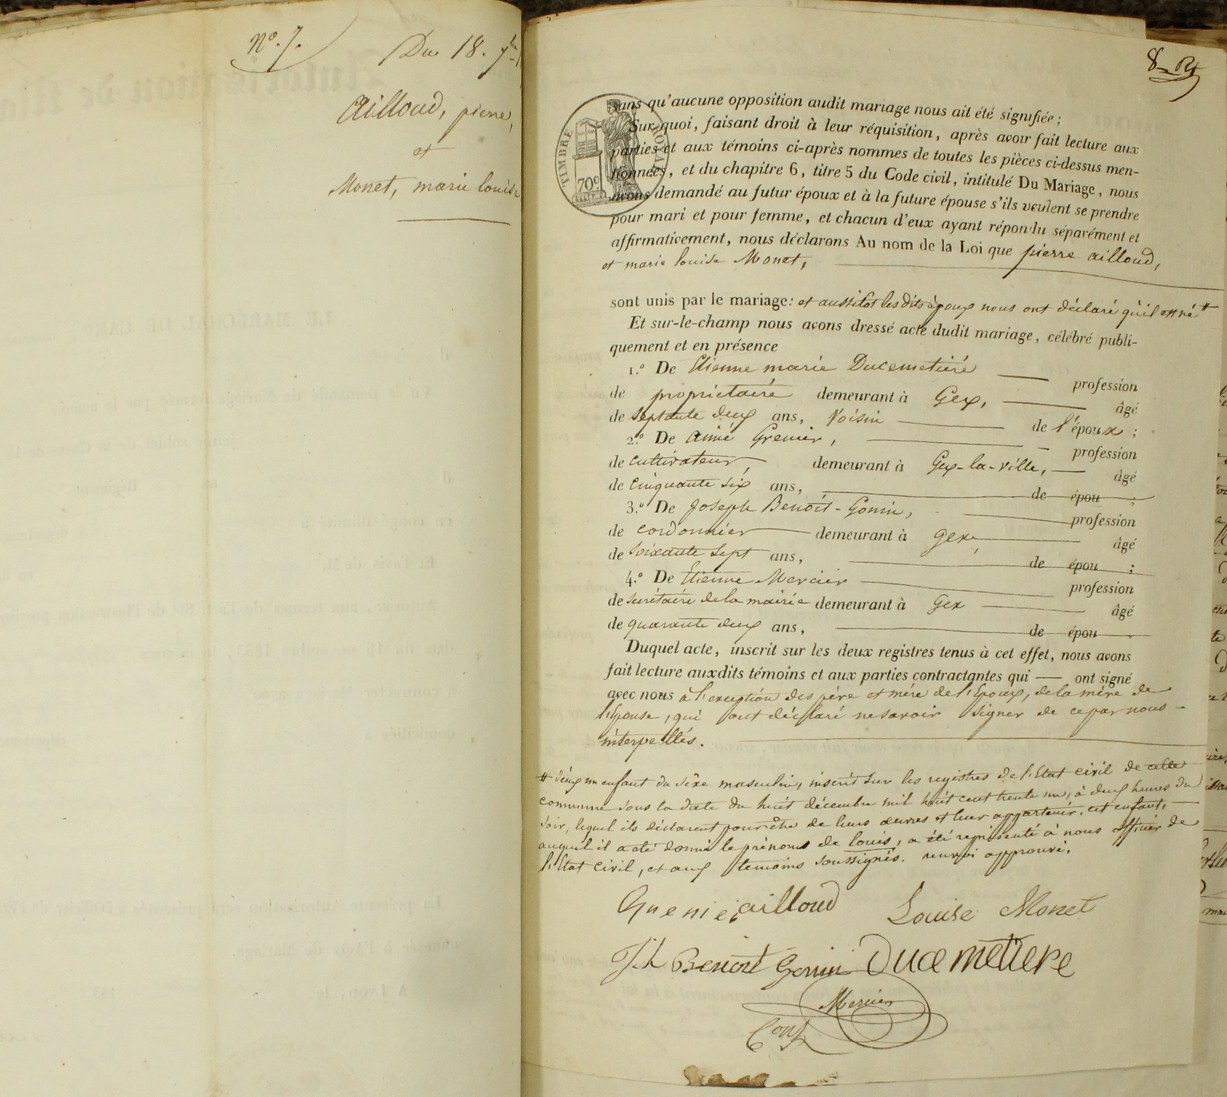 N.º 7.
Du 18. 7bre
Ailloud, pierre,
et
Monet, marie louise
8
TIMBRE ROYAL
70c
sans qu'aucune opposition audit mariage nous ait été signifiée ;
Sur quoi, faisant droit à leur réquisition, après avoir fait lecture aux
parties et aux témoins ci-après nommés de toutes les pièces ci-dessus men-
tionnées, et du chapitre 6, titre 5 du Code civil, intitulé Du Mariage, nous
avons demandé au futur époux et à la future épouse s'ils veulent se prendre
pour mari et pour femme, et chacun d'eux ayant répondu séparément et
affirmativement, nous déclarons Au nom de la Loi que pierre ailloud,
et marie louise Monet,
sont unis par le mariage : et aussitôt les dits époux nous ont déclaré qu'il est né #
Et sur-le-champ nous avons dressé acte dudit mariage, célébré publi-
quement et en présence
1.º De Etienne marie Ducemetiére profession
de propriétaire demeurant à Gex, âgé
de septante deux ans, Voisin de l'époux ;
2.º De aimé Grenier, profession
de cultivateur, demeurant à Gex-la-ville, âgé
de cinquante six ans, de épou ;
3.º De Joseph Benoit-Gonin, profession
de cordonnier demeurant à Gex, âgé
de soixante sept ans, de épou ;
4.º De Etienne Mercier profession
de secrétaire de la mairie demeurant à Gex âgé
de quarante deux ans, de épou
Duquel acte, inscrit sur les deux registres tenus à cet effet, nous avons
fait lecture auxdits témoins et aux parties contractantes qui — ont signé
avec nous à l'exception des père et mére de l'Epoux, de la mére de
l'Epouse, qui ont déclaré ne savoir signer de ce par nous
interpellés.
# d'eux un enfant du sèxe masculin, inscrit sur les registres de l'Etat civil de cette
commune sous la date du huit décembre mil huit cent trente un, à deux heures du
soir, lequel ils déclarent pour être de leurs œuvres et leur appartenir. cet enfant,
auquel il a été donné le prénom de louis, a été représenté à nous officier de
l'Etat civil, et aux témoins soussignés. renvoi approuvé.
Grenier ailloud Louise Monet
Jh Benoit Gonin Ducemetiere
Mercier